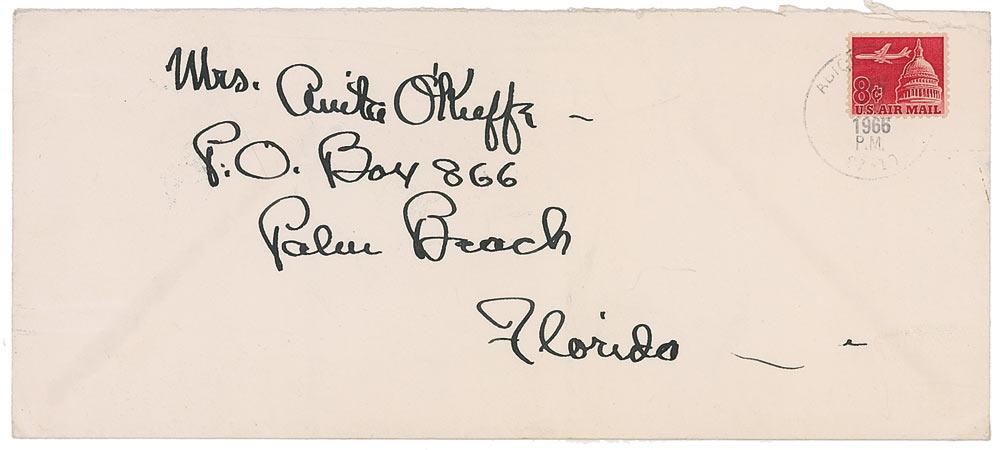 Mrs. Anita O'Keeffe
P.O. Box 866
Palm Beach
Florida
8¢
U.S. AIR MAIL
1966
P.M.